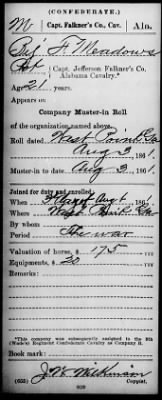 (CONFEDERATE.)
M | Capt. Falkner's Co., Cav. | Ala.
F Meadows
Capt. Jefferson Falkner's Co.
Alabama Cavalry.*
Age 21 years.
Appears on
Company Muster-in Roll
of the organization named above.
Roll dated West Point Ga
Aug 3, 1861.
Muster-in to date Aug 3, 1861.
Joined for duty and enrolled:
When Aug 1, 186
Where West Point Ga
By whom
Period The war
Valuation of horse, $ 175
Equipments, $ 20
Remarks:
*This company was subsequently assigned to the 8th
(Wade's) Regiment Confederate Cavalry as Company B.
Book mark:
(635)
Copyist.